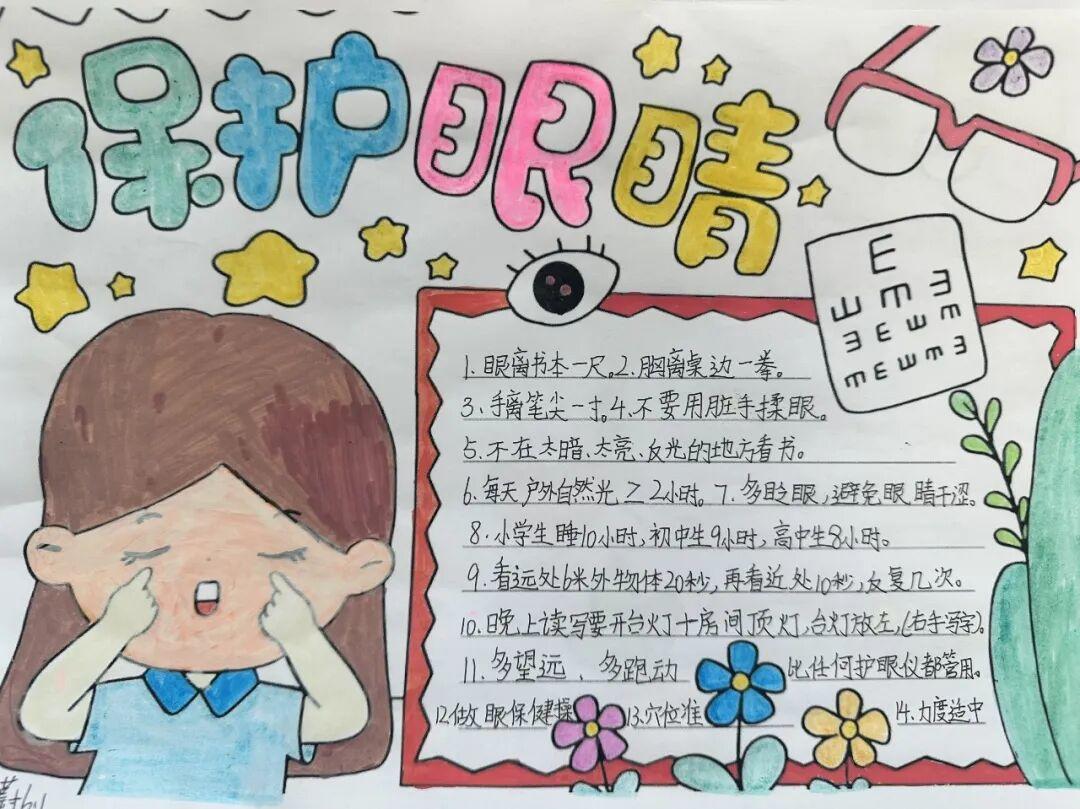 保护眼睛
E
E m m
m E w m
m E w m m
1.眼离书本一尺。2.胸离桌边一拳。
3.手离笔尖一寸。4.不要用脏手揉眼。
5.不在太暗、太亮、反光的地方看书。
6.每天户外自然光≥2小时。7.多眨眼,避免眼睛干涩。
8.小学生睡10小时,初中生9小时,高中生8小时。
9.看远处6米外物体20秒,再看近处10秒,反复几次。
10.晚上读写要开台灯+房间顶灯,台灯放左,(右手写字)。
11.多望远、多跑动 比任何护眼仪都管用。
12.做眼保健操 13.穴位准 14.力度适中